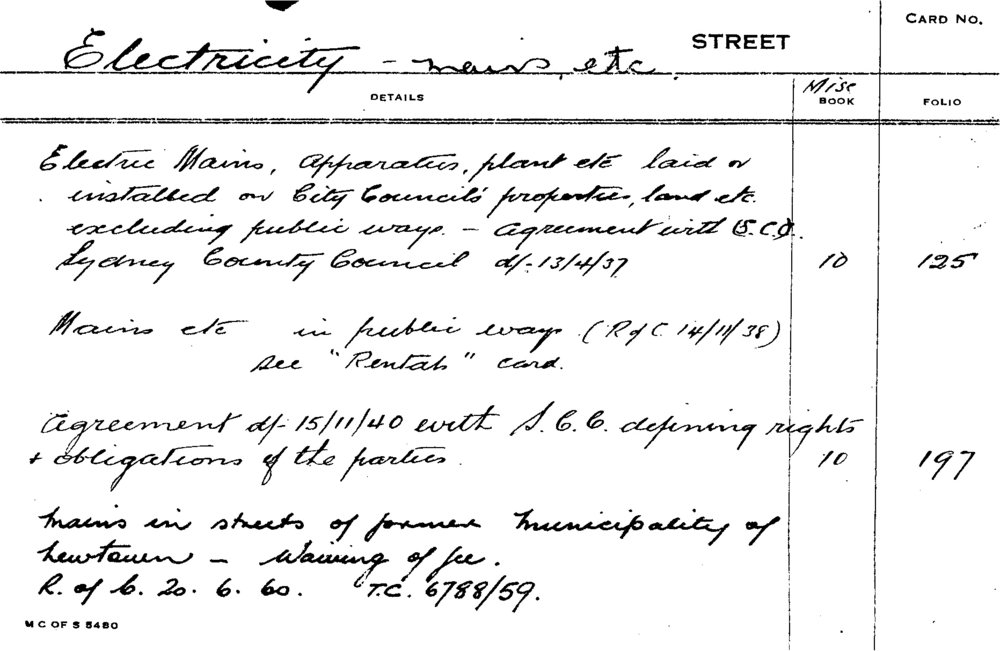 CARD NO.
Electricity - mains, etc. STREET
DETAILS Misc BOOK FOLIO
Electric Mains, Apparatus, plant etc laid or
installed on City Council's properties, land etc.
excluding public ways. - Agreement with (S.C.C).
Sydney County Council d/- 13/4/37 10 125
Mains etc in public ways (R of C. 14/11/38)
see "Rentals" card.
Agreement d/- 15/11/40 with S.C.C. defining rights
+ obligations of the parties. 10 197
Mains in streets of former Municipality of
Newtown - Waiving of fee.
R. of C. 20. 6. 60. T.C. 6788/59.
M C OF S 5480